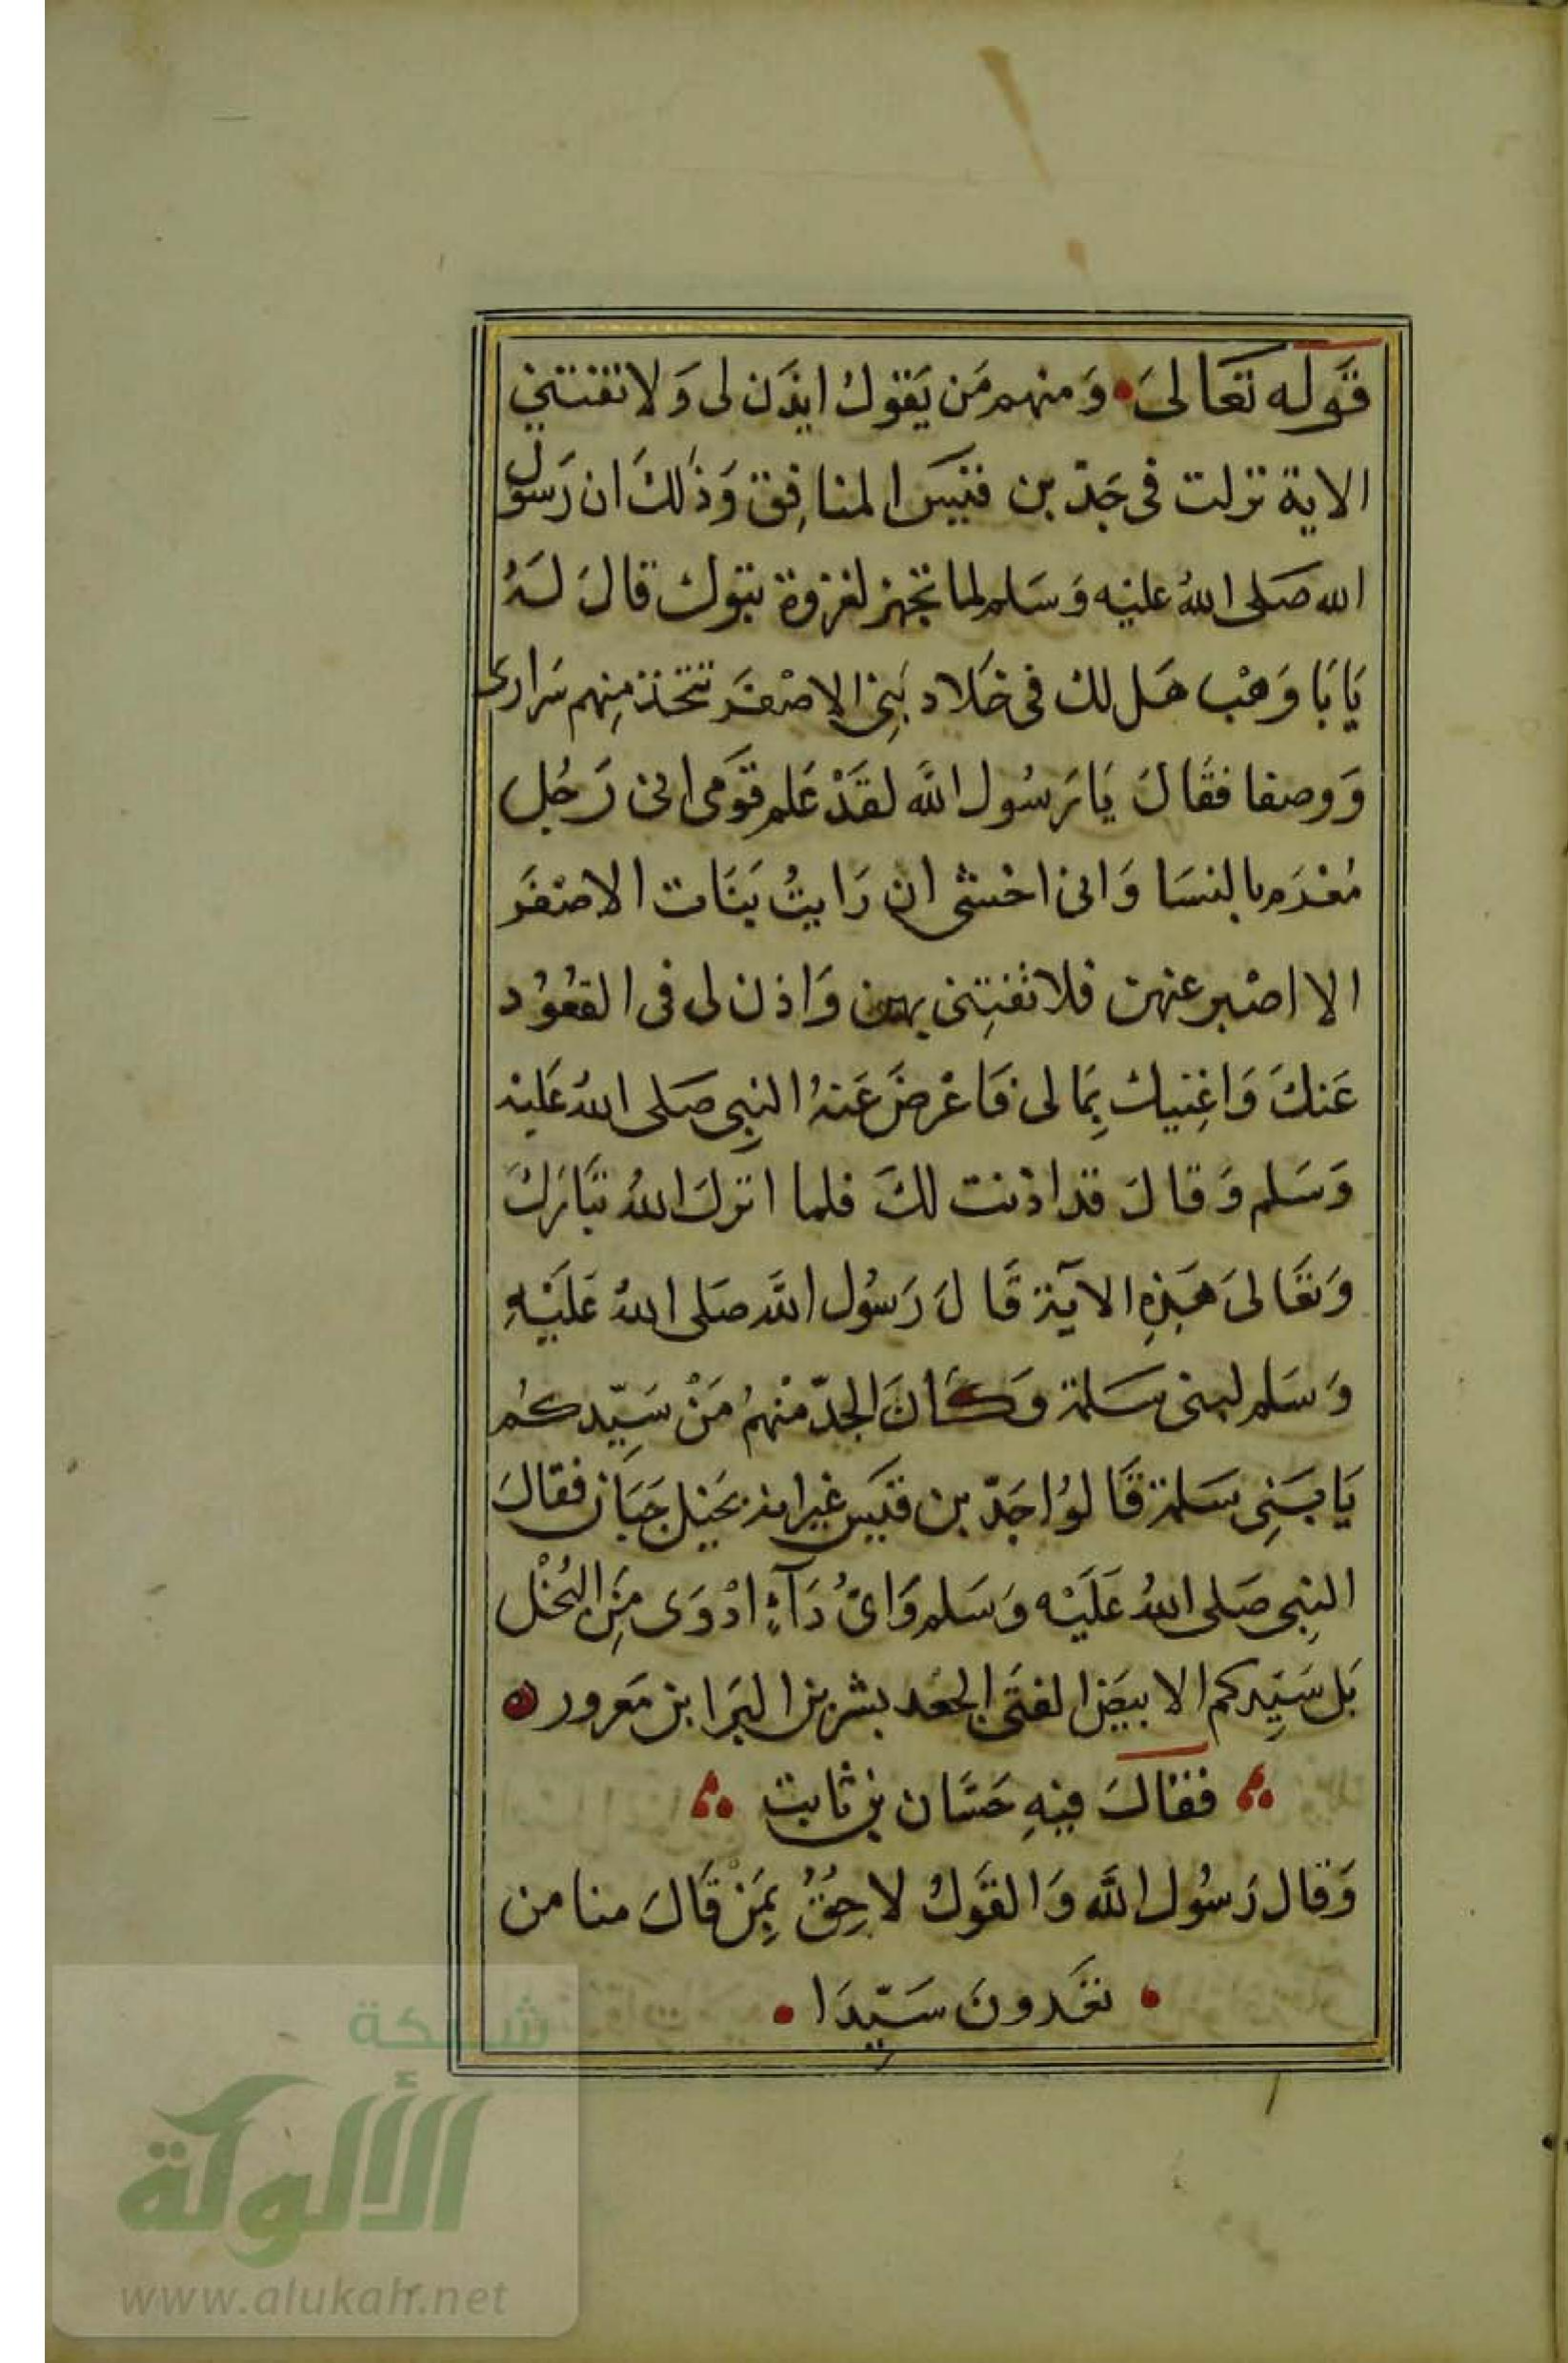 قَوله تعَالىَ • وَمنهم مَن يَقولُ ايذَن لى وَلا تفتنني
الاية نزلت فى جَدّ بن قيسَ المنافِق وَذٰلكَ ان رَسول
الله صَلى اللهُ عليْه وَسَلم لما تجَهز لغزوة تبَوك قالَ لَهُ
يَابَا وَهْب هَل لك فى خَلاد بَنِى الاصْفَر تتخذ مِنهم سَرارى
وَوصفا فقَالَ يَا رَسُول اللَّه لقَدْ عَلم قَومى انى رَجُل
مُغْرَم بالنسَا وَانى اخشى ان رَايتُ بَنَات الاصْفَر
الا اصْبر عنهن فلا تفتِنى بهن وَاذن لى فى القعُوُد
عَنكَ وَاغِنيك بِمَالى فَاعْرضَ عَنهُ النبِى صَلى اللهُ عَليْه
وَسَلم وَقالَ قد اذنت لكَ فلما انزلَ اللهُ تبَارَكَ
وَتعَالىَ هَذِهِ الآيَة قَالَ رَسُول اللَّه صَلى اللهُ عَلَيْهِ
وَسَلم لبنى سَلمة وَكَانَ الجدّ منْهمُ مَنْ سَيِّدكمُ
يَا بَنِى سَلمة قَالوُا جَدّ بن قيَس غير انه بَخيل جَبَان فقالَ
النبِى صَلى اللهُ عَلَيْه وَسَلم وَاىُّ دَآءٍ ادْوَى مِنَ البُخْل
بَل سَيِّدكم الابيَض الفتَى الجعْد بشر بن البَرا بن مَعرور
فقَالَ فيهِ حَسَّان بن ثابت
وَقال رَسُول اللَّه وَالقَولُ لاحِقُ بِمَنْ قَالَ منا من
• تعَدونَ سَيّدَا •
شبكة
الألوكة
www.alukah.net